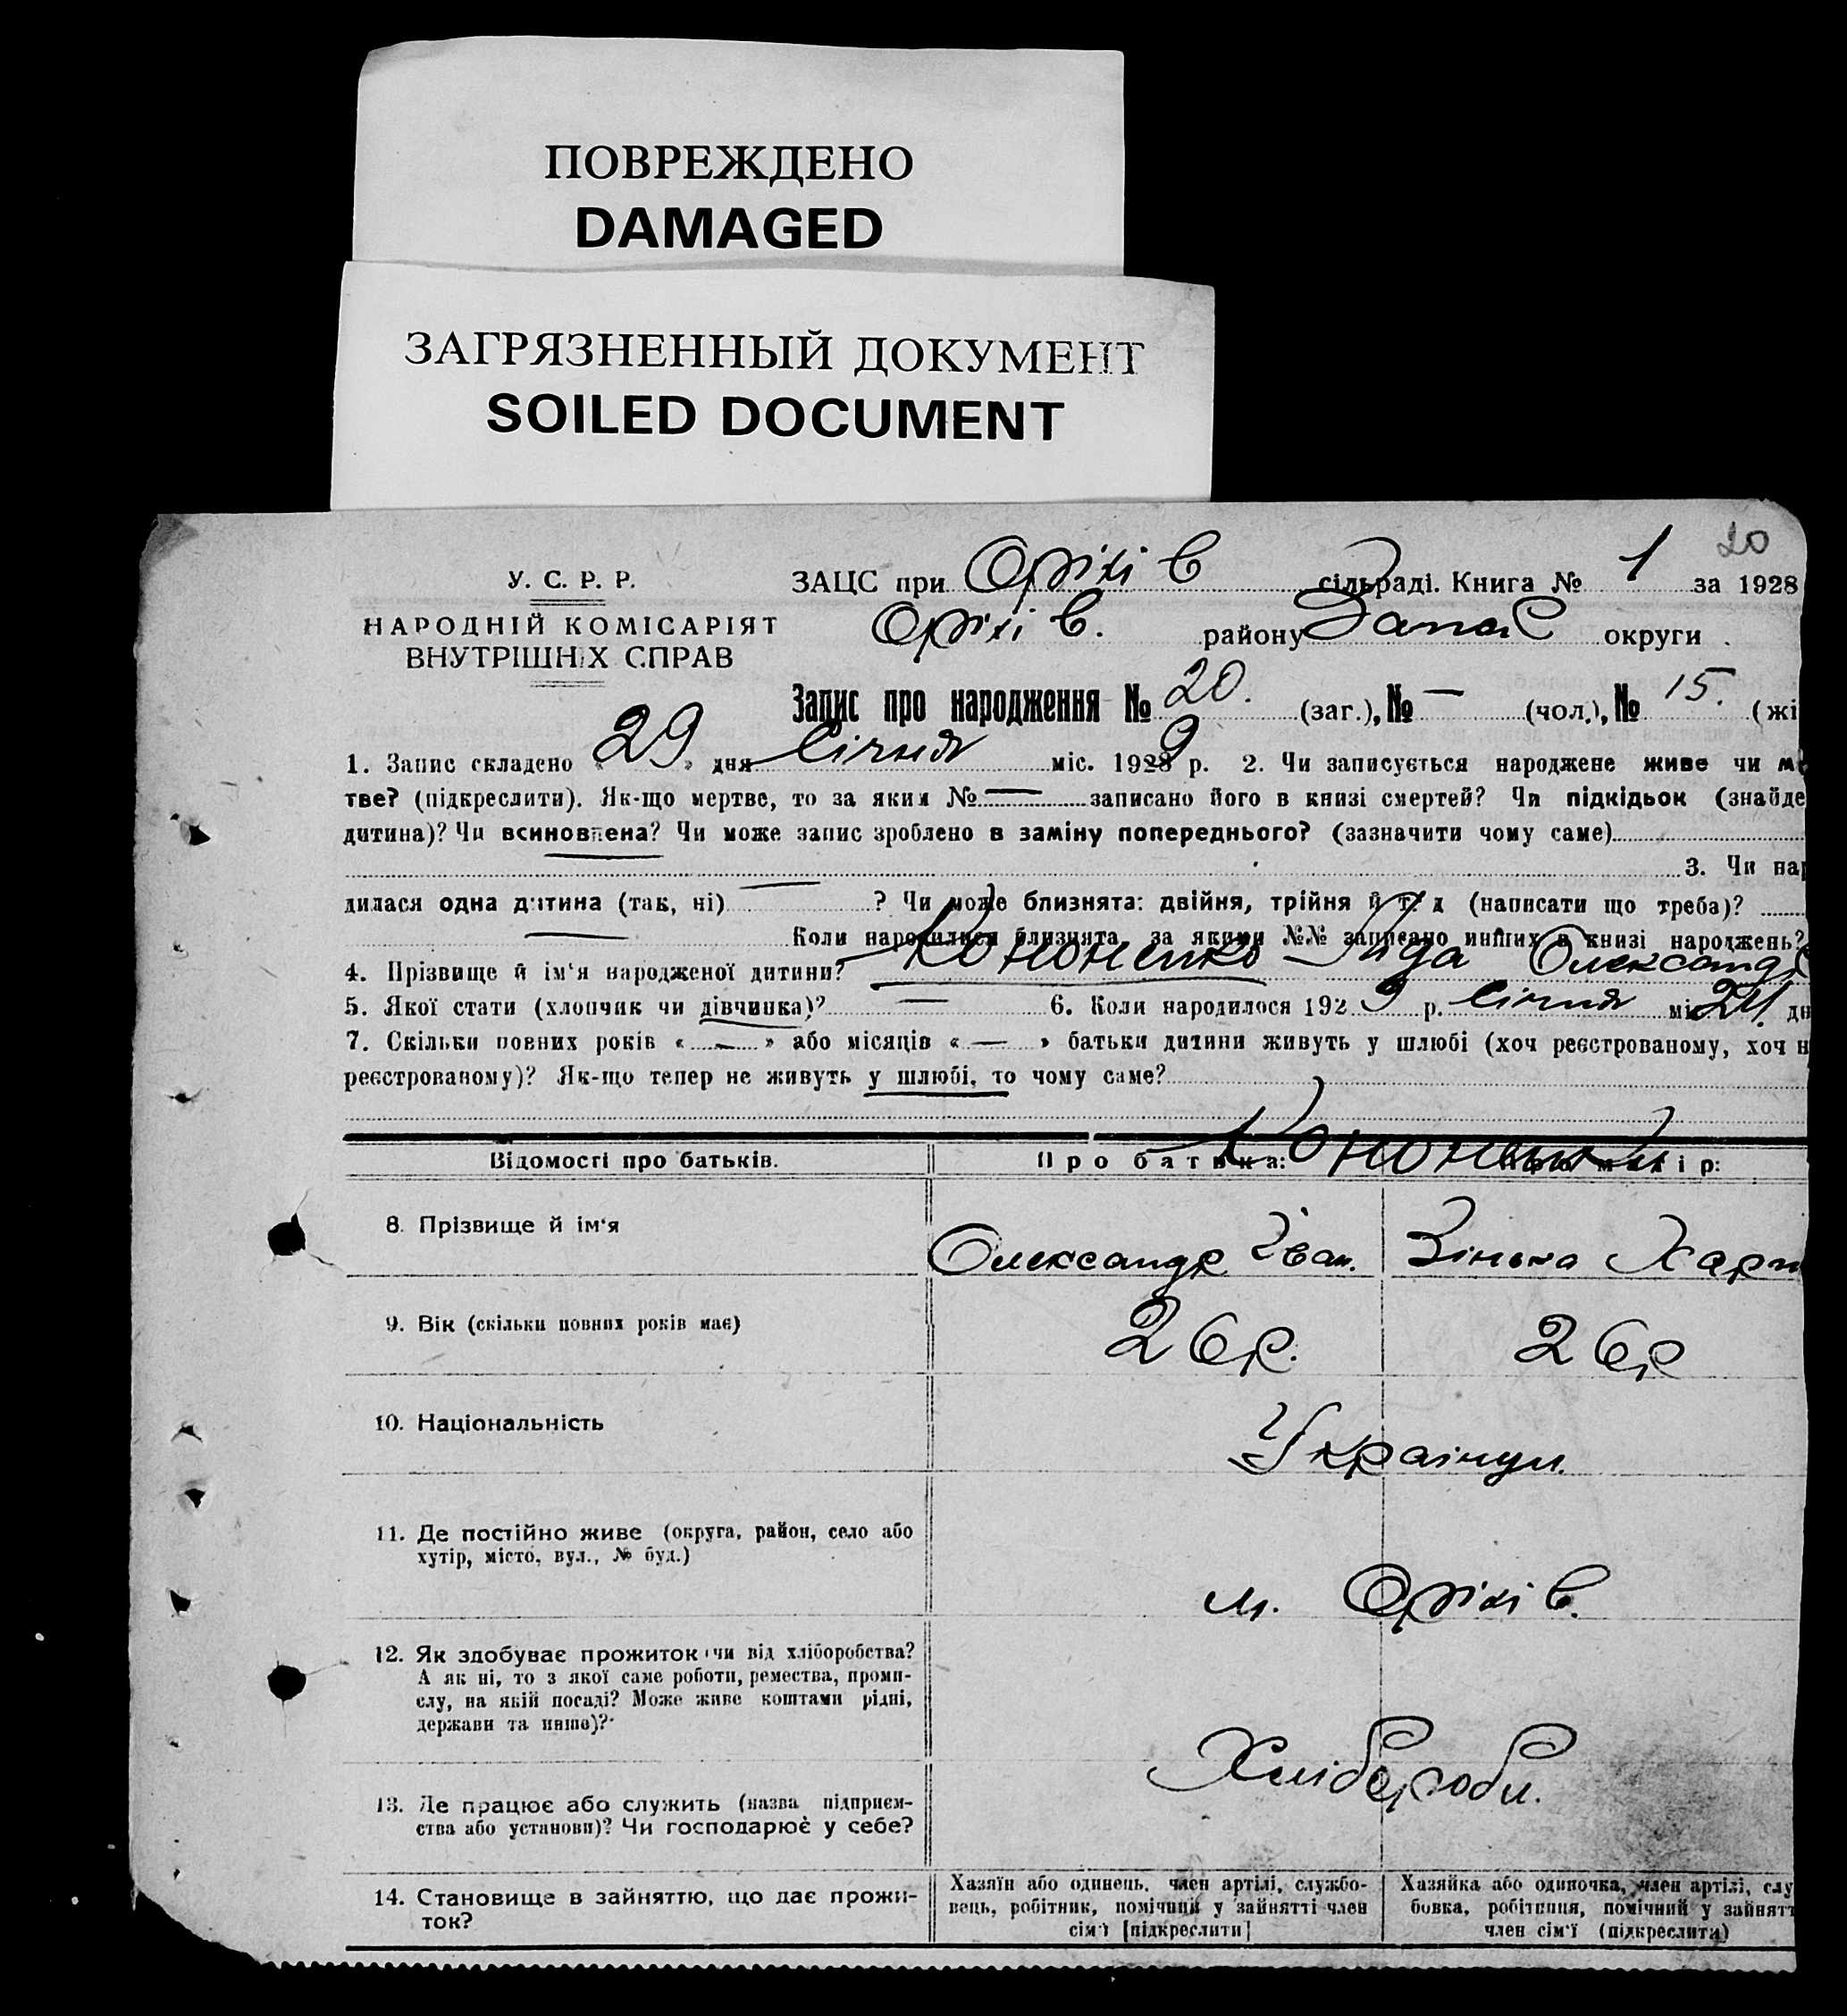 ПОВРЕЖДЕНО
DAMAGED
ЗАГРЯЗНЕННЫЙ ДОКУМЕНТ
SOILED DOCUMENT
20
У. С. Р. Р.
НАРОДНІЙ КОМІСАРІЯТ
ВНУТРІШНІХ СПРАВ
ЗАЦС при Оріхів сільраді. Книга № 1 за 1928
Оріхів. району Запоріз округи
Запис про народження № 20. (заг.), № — (чол.), № 15. (жі
1. Запис складено « 29 » дня Січня міс. 1929 р. 2. Чи записується народжене живе чи ме
тве? (підкреслити). Як-що мертве, то за яким № — записано його в книзі смертей? Чи підкідьок (знайде
дитина)? Чи всиновлена? Чи може запис зроблено в заміну попереднього? (зазначити чому саме)
3. Чи нар
дилася одна дитина (так, ні) — ? Чи може близнята: двійня, трійня й т. д (написати що треба)?
— Коли народилися близнята, за якими №№ записано инших в книзі народжень?
4. Прізвище й ім'я народженої дитини? Кононенко Лида Олександ
5. Якої стати (хлопчик чи дівчинка)? — 6. Коли народилося 1929 р. Січня міс. 24. дн
7. Скільки повних років « — » або місяців « — » батьки дитини живуть у шлюбі (хоч реєстрованому, хоч н
реєстрованому)? Як-що тепер не живуть у шлюбі, то чому саме?
Відомості про батьків. Про батька: Кононенки Про матір:
8. Прізвище й ім'я Олександр Іван. Зінька Хари
9. Вік (скільки повних років має) 26р. 26р
10. Національність Українци.
11. Де постійно живе (округа, район, село або
хутір, місто, вул., № буд.)
м. Оріхів.
12. Як здобуває прожиток (чи від хліборобства?
А як ні, то з якої саме роботи, ремества, проми-
слу, на якій посаді? Може живе коштами рідні,
держави та инше)?
Хліборобы.
13. Де працює або служить (назва підприєм-
ства або установи)? Чи господарює у себе?
14. Становище в зайняттю, що дає прожи-
ток?
Хазяїн або одинець, член артілі, службо-
вець, робітник, помічний у зайнятті член
сім'ї [підкреслити]
Хазяйка або одиночка, член артілі, слу
бовка, робітниця, помічний у зайнятт
член сім'ї (підкреслити)